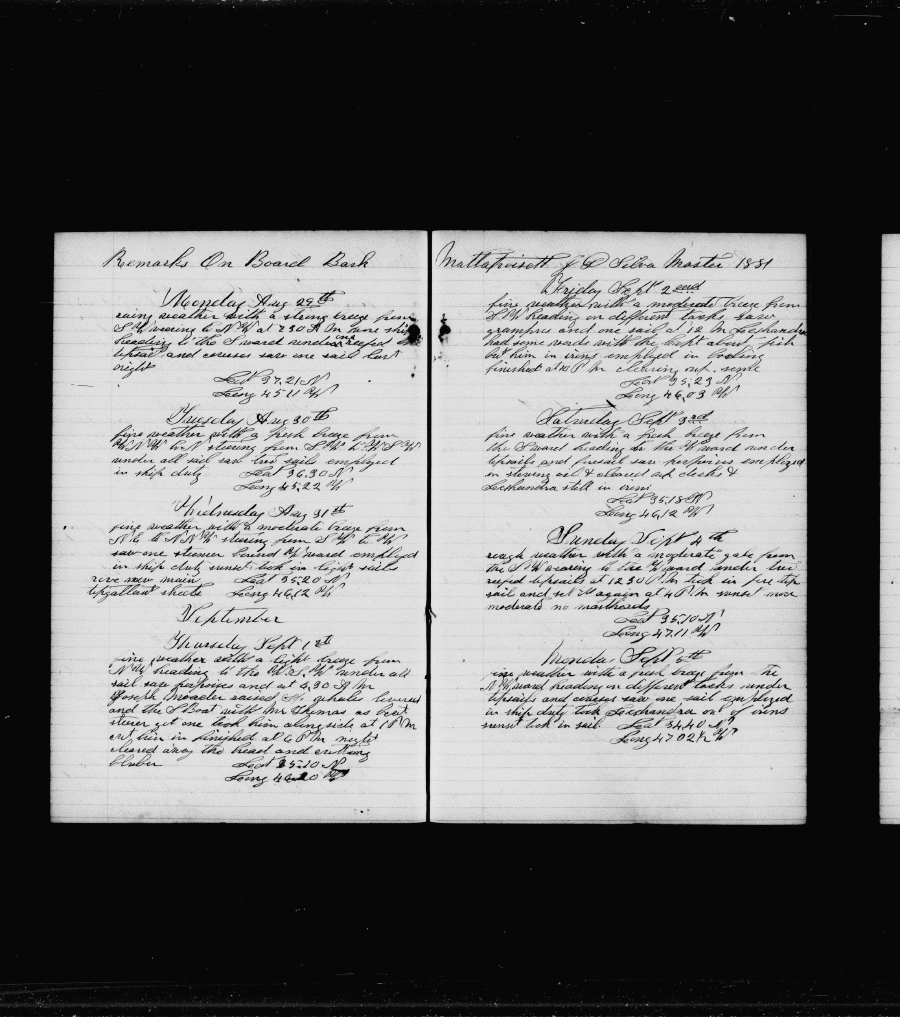 Remarks On Board Bark
Monday Aug 29th
weather with a strong breeze from
S W veering to N W at 2 30 A M wore ship
heading to the S ward under reefs
topsail and courses saw one sail last
night
Lat 37.21 N
Long 45.11 W
Tuesday Aug 30th
fine weather with a fresh breeze from
W N W to N stering from S W to W S W
under all sail saw two sails employed
in ship duty Lat 36.30 N
Long 45.22 W
Wednesday Aug 31th
fine weather with a moderate breeze from
N E to N N W stering from S W to W
saw one steamer bound W ward employed
in ship duty sunset took in light sails
rove new main Lat 35.20 N
topgallant sheets Long 46.12 W
September
Thursday Sept 1st
fine weather with a light breeze from
N W heading to the W S W under all
sail saw porpoises and at 4.30 A M
Joseph raised whales lowered
and the S Boat with Mr Thomas as boat
sterer got one took him along side at 1 P M
cut him in finished at 6 P M night
cleared away the head and cutting
bluber Lat 35.10 N
Long 46.20 W
Mattapoisett J D Silva Master 1881
Friday Sept 2nd
fine weather with a moderate breeze from
S W heading on different tacks saw
grampus and one sail at 12 M Lechandra
had some words with the capt about fish
put him in irins employed in boiling
finished at 10 P M clearing up some
Lat 35.23 N
Long 46.03 W
Saturday Sept 3rd
fine weather with a fresh breeze from
the S ward heading to the W ward under
topsails and foresail saw porpoises employed
in stowing oil & cleared up decks &
Lechandra still in irins
Lat 35.18 N
Long 46.12 W
Sunday Sept 4th
rough weather with a moderate gale from
the S W veering to the W ward under two
reefed topsails at 12 30 P M took in fore top
sail and set it again at 4 P M sunset more
moderate no mastheads
Lat 35.10 N
Long 47.11 W
Monday Sept 5th
fine weather with a fresh breeze from the
N W ward heading on different tacks under
topsails and courses saw one sail employed
in ship duty took Lechandra out of irins
sunset took in sail Lat 34.40 N
Long 47 02 W